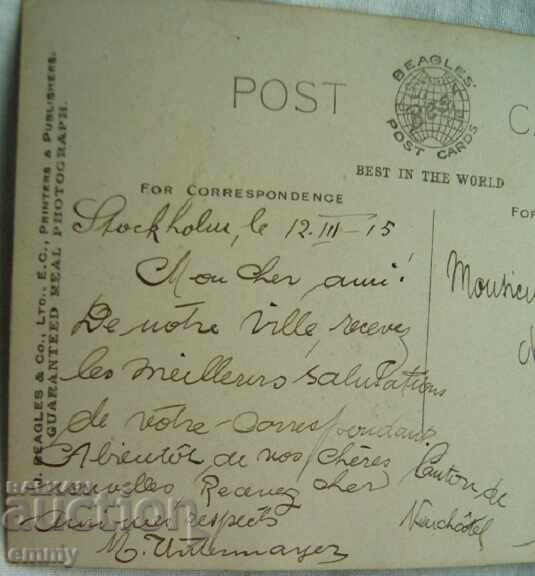 J. BEAGLES & Co., LTD., E.C., PRINTERS & PUBLISHERS.
GUARANTEED REAL PHOTOGRAPH.
POST
BEAGLES'
POST CARDS
BEST IN THE WORLD
FOR CORRESPONDENCE
Stockholm, le 12.III-15
Mon cher ami!
De notre ville, recevez
les meilleurs salutations
de votre correspondant
A bientôt de nos chères
nouvelles Recevez cher
ami mes respects
Monsieur
Canton de
Neuchâtel
BALKAN
auction
emmy